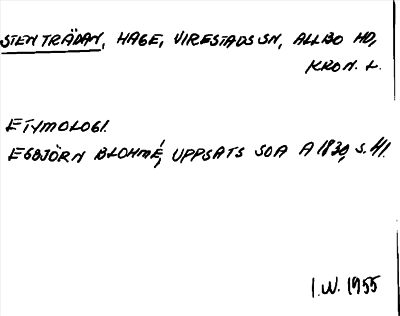 STENTRÄDAN, HAGE, VIRESTADS SN, ALLBO HD,
KRON. L.
ETYMOLOGI.
EGBJÖRN BLOHMÉ, UPPSATS SOA A 1830, S. 41.
I.W. 1955